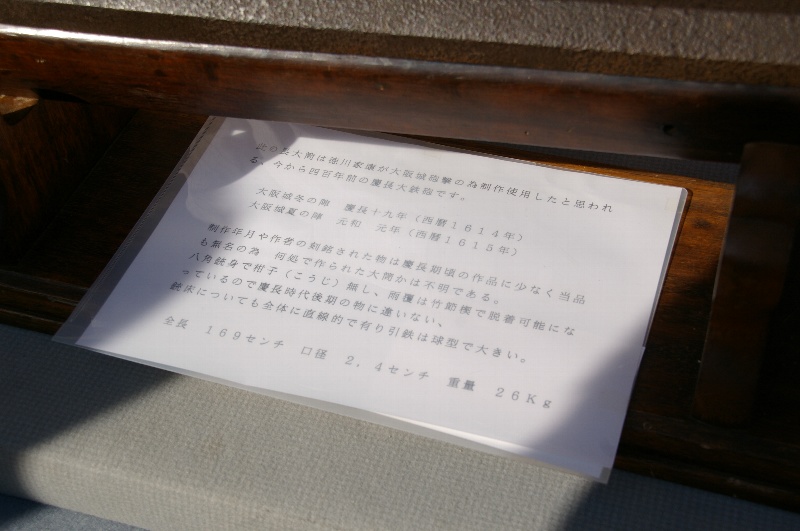 此の長大筒は徳川家康が大阪城砲撃の為制作使用したと思われ
る、今から四百年前の慶長大鉄砲です。
大阪城冬の陣 慶長十九年（西暦１６１４年）
大阪城夏の陣 元和 元年（西暦１６１５年）
制作年月や作者の刻銘された物は慶長期頃の作品に少なく当品
も無名の為 何処で作られた大筒かは不明である。
八角銃身で柑子（こうじ）無し、雨覆は竹節楔で脱着可能にな
っているので慶長時代後期の物に違いない、
銃床についても全体に直線的で有り引鉄は球型で大きい。
全長 １６９センチ 口径 ２．４センチ 重量 ２６Ｋｇ